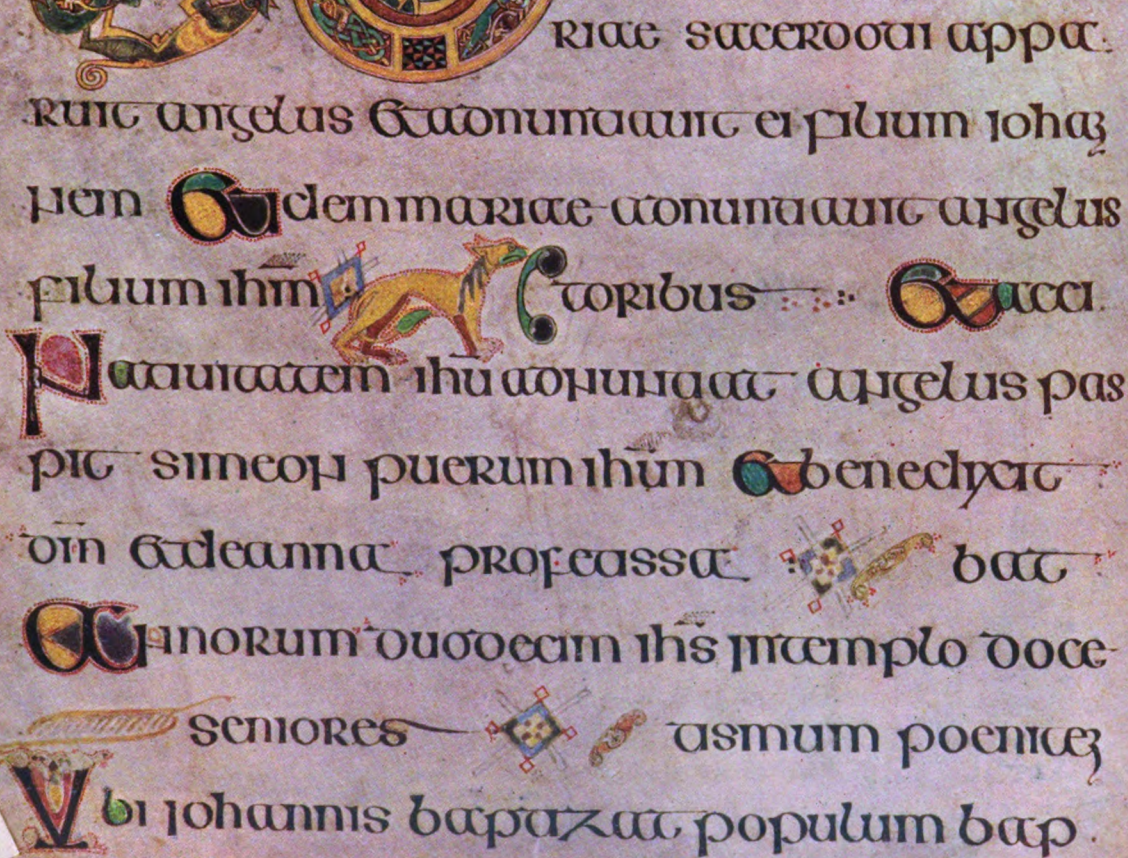 riae sacerdoti appa
ruit angelus et adnuntiauit ei filium iohan
nem Eidem mariae adnuntiauit angelus
filium ihm̄ toribus Et acci
Natiuitatem ihū adnuntiat angelus pas
pit simeon puerum ihm̄ et benedixit
dm̄ et de anna profetissa bat
Annorum duodecim ihs̄ in templo doce
seniores tismum poeniten
Vbi iohannis baptizat populum bap